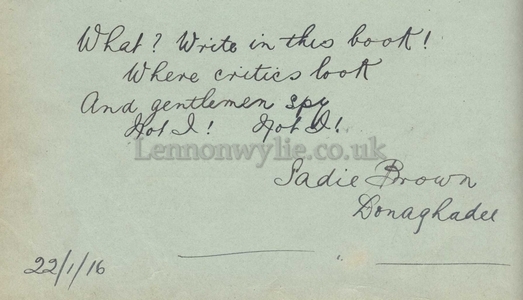 What? Write in this book!
Where critics look
And gentlemen spy
Not I! Not I!
Lennonwylie.co.uk
Sadie Brown
Donaghadee
22/1/16